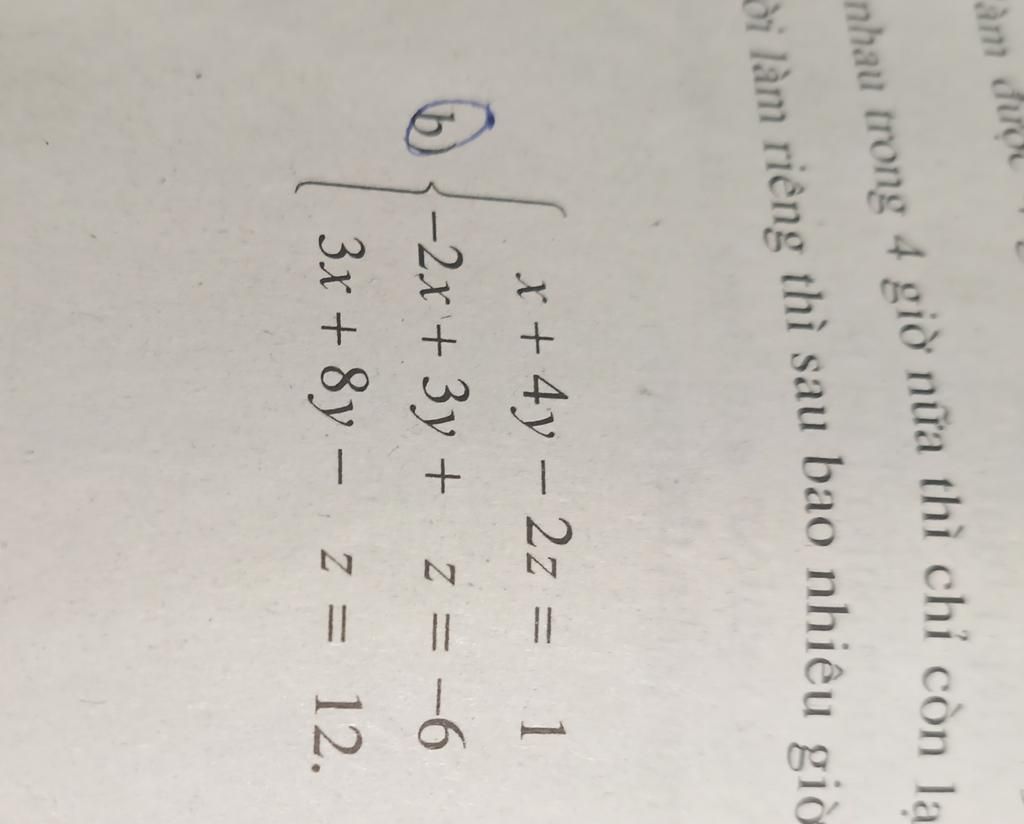 làm được
nhau trong 4 giờ nữa thì chỉ còn lạ
ời làm riêng thì sau bao nhiêu giờ
x + 4y − 2z = 1
b) { −2x + 3y + z = −6
3x + 8y − z = 12.